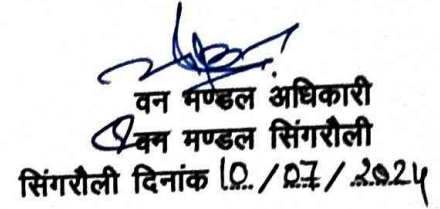 वन मण्डल अधिकारी
वन मण्डल सिंगरौली
सिंगरौली दिनांक 10/07/2024